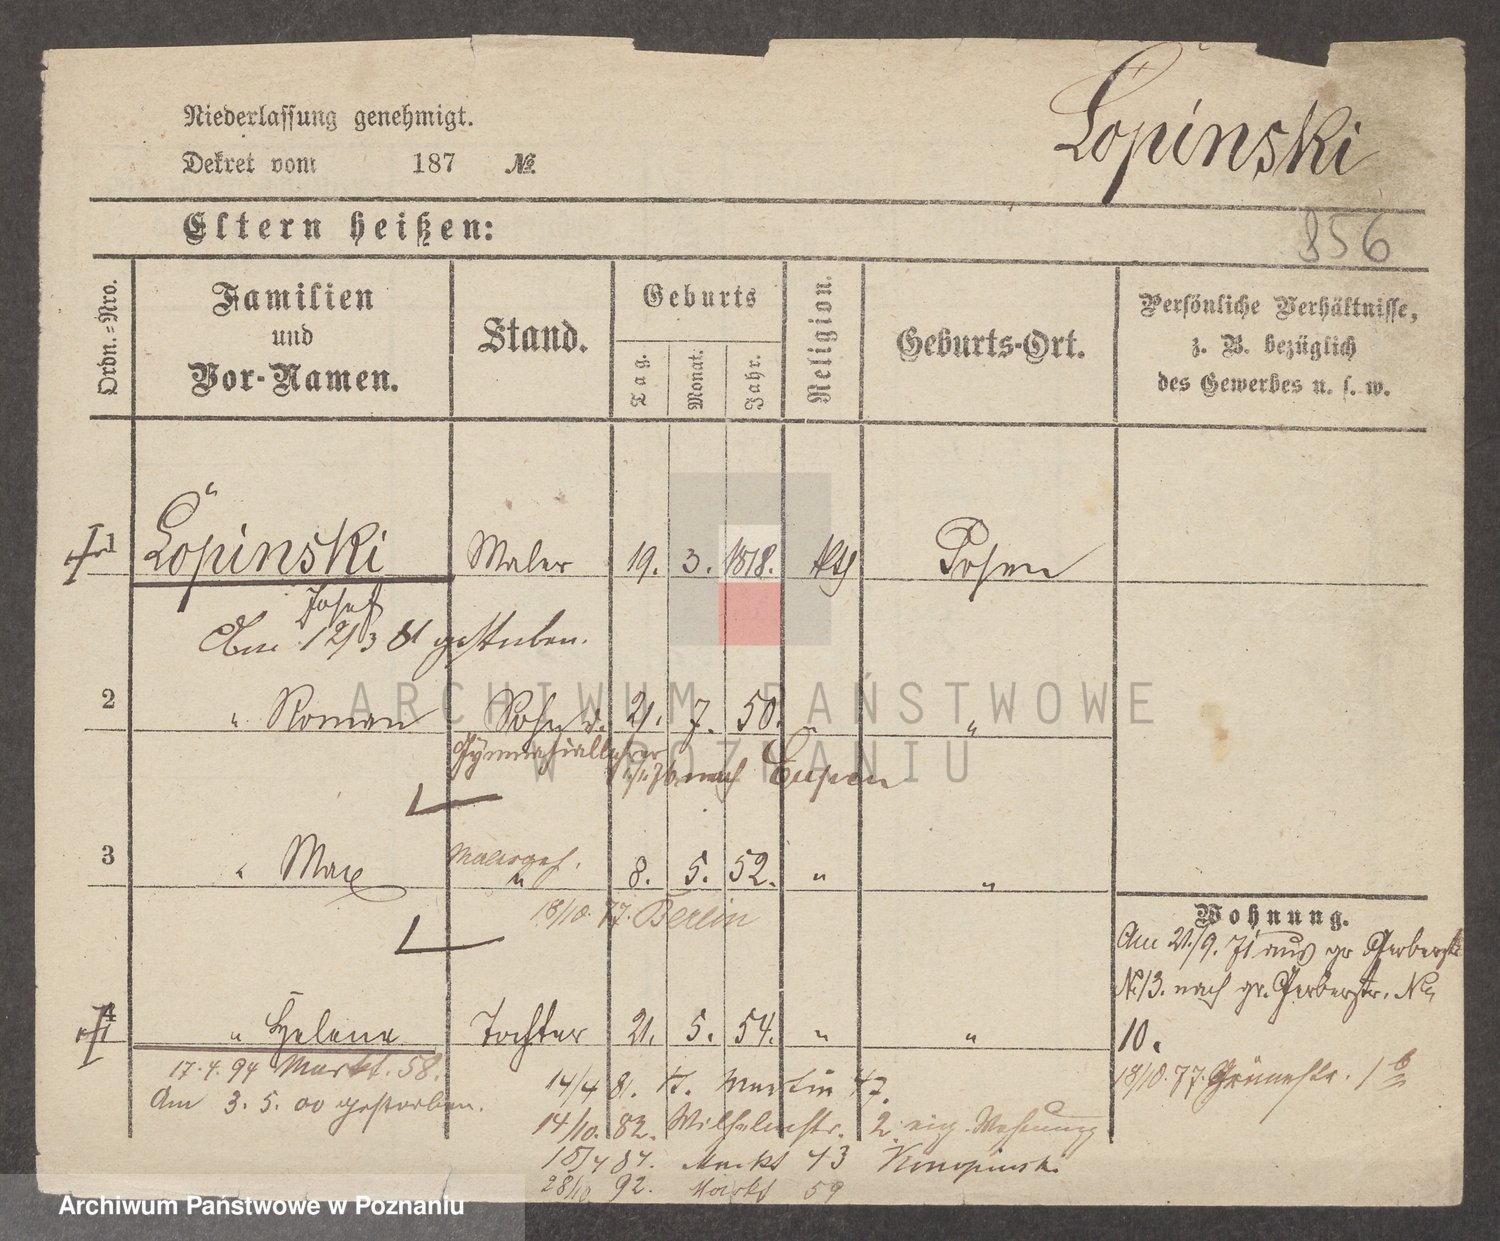 Niederlassung genehmigt.
Dekret vom 187 №.
Łopinski
Eltern heißen:
856
Ordn.-Nro.
Familien
und
Vor-Namen.
Stand.
Geburts
Tag.
Monat.
Jahr.
Religion.
Geburts-Ort.
Persönliche Verhältnisse,
z. B. bezüglich
des Gewerbes u. s. w.
1 Łopinski Maler 19. 3. 1818. kth Posen
Josef
Am 12/3 81 gestorben.
2 " Roman Sohn d. 21. 7. 50. " "
Gymnasiallehrer
nach Eupen
3 " Max Malergeh. " 8. 5. 52. " "
18/10. 77. Berlin
4 " Helena Tochter 21. 5. 54. " "
17. 4. 94 Markt. 58.
Am 3. 5. 00 gestorben.
Wohnung.
Am 21./9. 71 aus gr Gerberstr.
№ 13. nach gr. Gerberstr. №
10.
18/10. 77. Grünestr. 1
14/4 81. St. Martin 47.
14/10. 82. Wilhelmstr. 2. eig. Wohnung
15/4 87. Markt 43 Konopinski
28/10 92. Markt 59
ARCHIWUM PAŃSTWOWE
W POZNANIU
Archiwum Państwowe w Poznaniu